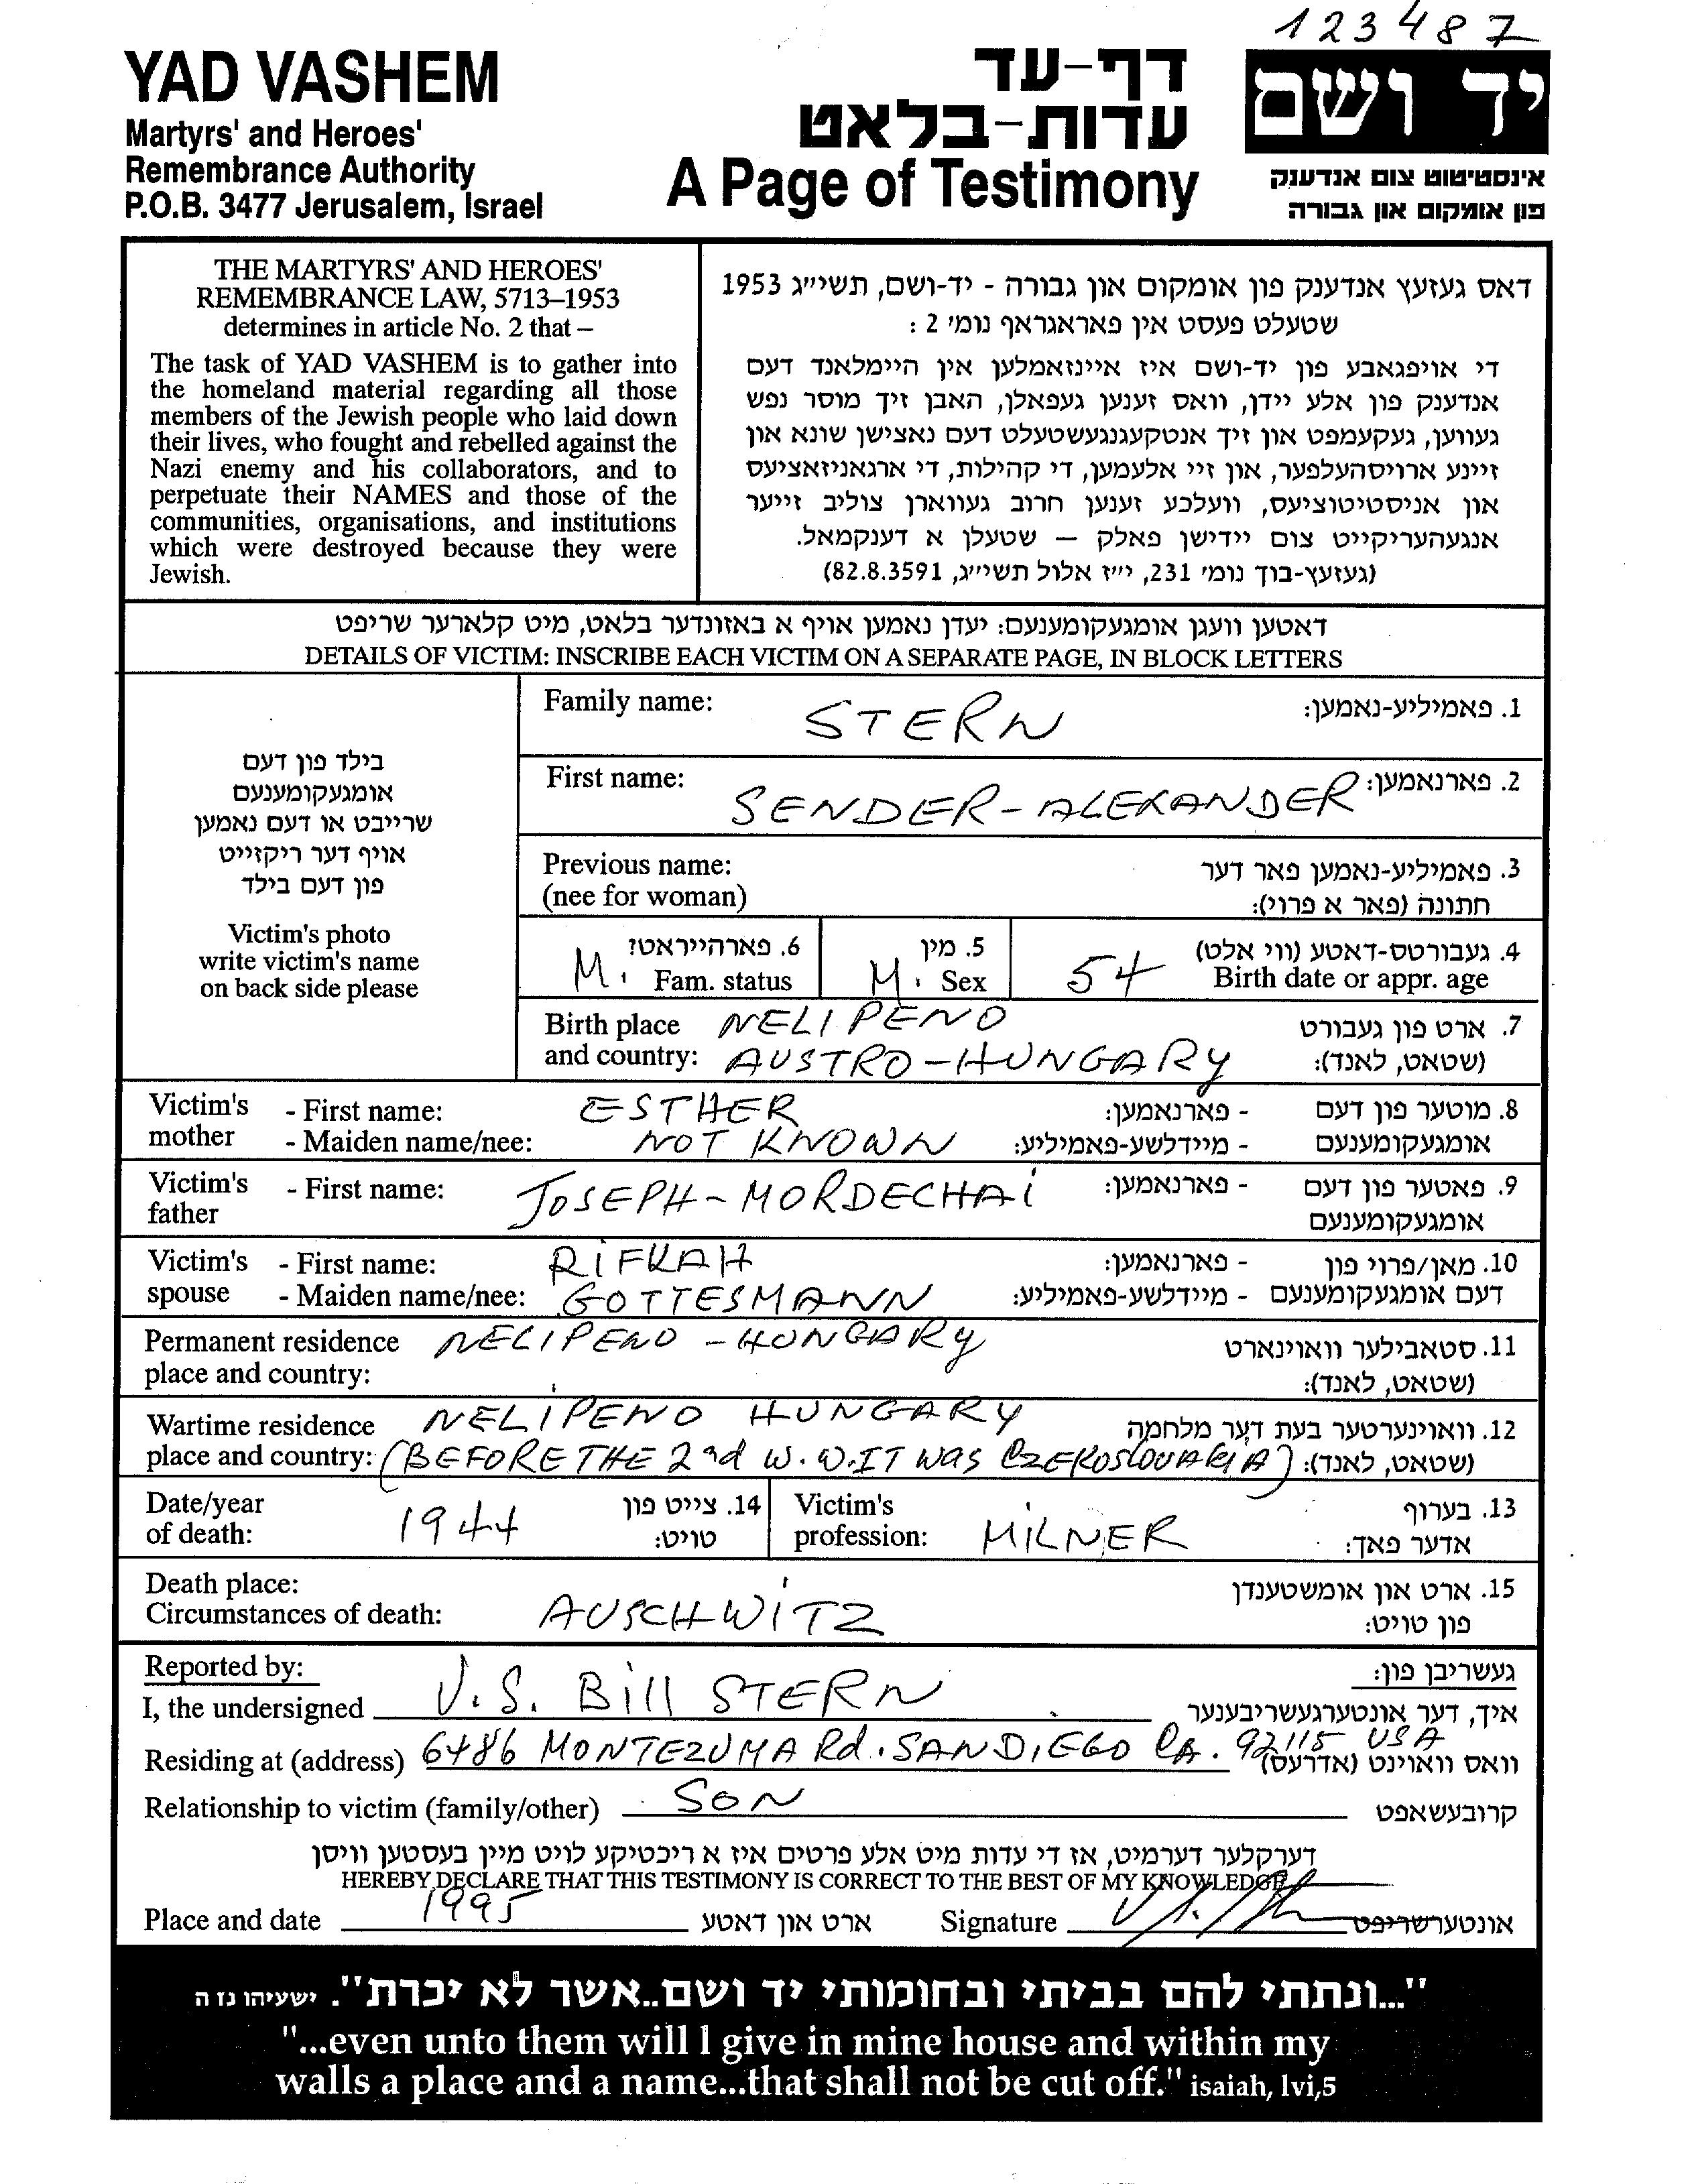 123487
YAD VASHEM
Martyrs' and Heroes'
Remembrance Authority
P.O.B. 3477 Jerusalem, Israel
דף-עד
עדות-בלאט
A Page of Testimony
יד ושם
אינסטיטוט צום אנדענק
פון אומקום און גבורה
THE MARTYRS' AND HEROES'
REMEMBRANCE LAW, 5713–1953
determines in article No. 2 that –
The task of YAD VASHEM is to gather into
the homeland material regarding all those
members of the Jewish people who laid down
their lives, who fought and rebelled against the
Nazi enemy and his collaborators, and to
perpetuate their NAMES and those of the
communities, organisations, and institutions
which were destroyed because they were
Jewish.
דאס געזעץ אנדענק פון אומקום און גבורה - יד-ושם, תשי״ג 1953
שטעלט פעסט אין פאראגראף נומ׳ 2 :
די אויפגאבע פון יד-ושם איז איינזאמלען אין היימלאנד דעם
אנדענק פון אלע יידן, וואס זענען געפאלן, האבן זיך מוסר נפש
געווען, געקעמפט און זיך אנטקעגנגעשטעלט דעם נאצישן שונא און
זיינע ארויסהעלפער, און זיי אלעמען, די קהילות, די ארגאניזאציעס
און אניסטיטוציעס, וועלכע זענען חרוב געווארן צוליב זייער
אנגעהעריקייט צום יידישן פאלק — שטעלן א דענקמאל.
(געזעץ-בוך נומ׳ 231, י״ז אלול תשי״ג, 82.8.3591)
דאטען וועגן אומגעקומענעם: יעדן נאמען אויף א באזונדער בלאט, מיט קלארער שריפט
DETAILS OF VICTIM: INSCRIBE EACH VICTIM ON A SEPARATE PAGE, IN BLOCK LETTERS
בילד פון דעם
אומגעקומענעם
שרייבט או דעם נאמען
אויף דער ריקזייט
פון דעם בילד
Victim's photo
write victim's name
on back side please
Family name: STERN 1. פאמיליע-נאמען:
First name: SENDER-ALEXANDER 2. פארנאמען:
Previous name: 3. פאמיליע-נאמען פאר דער
(nee for woman) חתונה (פאר א פרוי):
6. פארהייראט? 5. מין 4. געבורטס-דאטע (ווי אלט)
M. Fam. status M. Sex 54 Birth date or appr. age
Birth place NELIPENO 7. ארט פון געבורט
and country: AUSTRO-HUNGARY (שטאט, לאנד):
Victim's - First name: ESTHER - פארנאמען: 8. מוטער פון דעם
mother - Maiden name/nee: NOT KNOWN - מיידלשע-פאמיליע: אומגעקומענעם
Victim's - First name: JOSEPH-MORDECHAI - פארנאמען: 9. פאטער פון דעם
father אומגעקומענעם
Victim's - First name: RIFKAH - פארנאמען: 10. מאן/פרוי פון
spouse - Maiden name/nee: GOTTESMANN - מיידלשע-פאמיליע: דעם אומגעקומענעם
Permanent residence NELIPENO - HUNGARY 11. סטאבילער וווינארט
place and country: (שטאט, לאנד):
Wartime residence NELIPENO HUNGARY 12. וואוינערטער בעת דער מלחמה
place and country: (BEFORE THE 2nd W.W. IT WAS CZEKOSLOVAKIA) (שטאט, לאנד):
Date/year 14. צייט פון Victim's 13. בערוף
of death: 1944 טויט: profession: MILNER אדער פאך:
Death place: 15. ארט און אומשטענדן
Circumstances of death: AUSCHWITZ פון טויט:
Reported by: געשריבן פון:
I, the undersigned V.S. Bill STERN איך, דער אונטערגעשריבענער
Residing at (address) 6486 MONTEZUMA Rd. SAN DIEGO CA. 92115 USA וואס וואוינט (אדרעס)
Relationship to victim (family/other) SON קרובעשאפט
דערקלער דערמיט, אז די עדות מיט אלע פרטים איז א ריכטיקע לויט מיין בעסטען וויסן
HEREBY DECLARE THAT THIS TESTIMONY IS CORRECT TO THE BEST OF MY KNOWLEDGE
Place and date 1995 ארט און דאטע Signature אונטערשריפט
"...ונתתי להם בביתי ובחומותי יד ושם..אשר לא יכרת". ישעיהו נז ה
"...even unto them will I give in mine house and within my
walls a place and a name...that shall not be cut off." isaiah, lvi,5